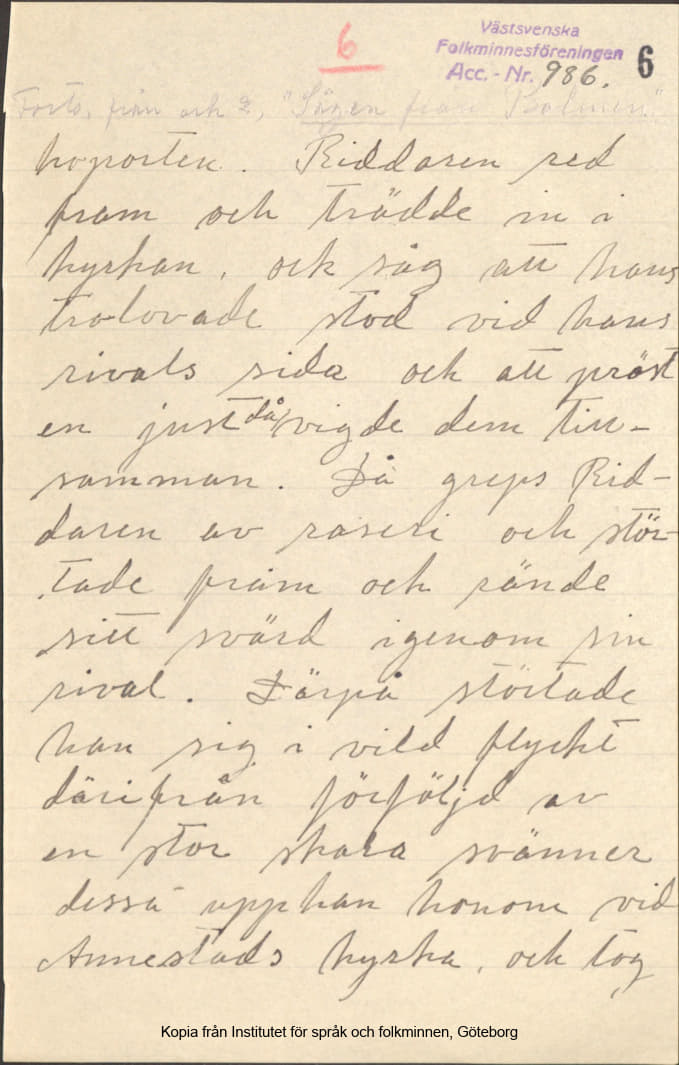 6
Västsvenska
Folkminnesföreningen
Acc. - Nr. 986. 6
Forts. från ark 2, "Sägen från Bolmen"
hvporten. Riddaren red
fram och trädde in i
kyrkan, och såg att hans
trolovade stod vid hans
rivals sida och att präst
en just då vigde dem till-
samman. Då greps Rid-
daren av raseri och stör-
tade fram och rände
sitt svärd igenom sin
rival. Därpå störtade
han sig i vild flyckt
därifrån förföljd av
en stor skara svänner
dessa upphan honom vid
Annestads kyrka, och tog
Kopia från Institutet för språk och folkminnen, Göteborg